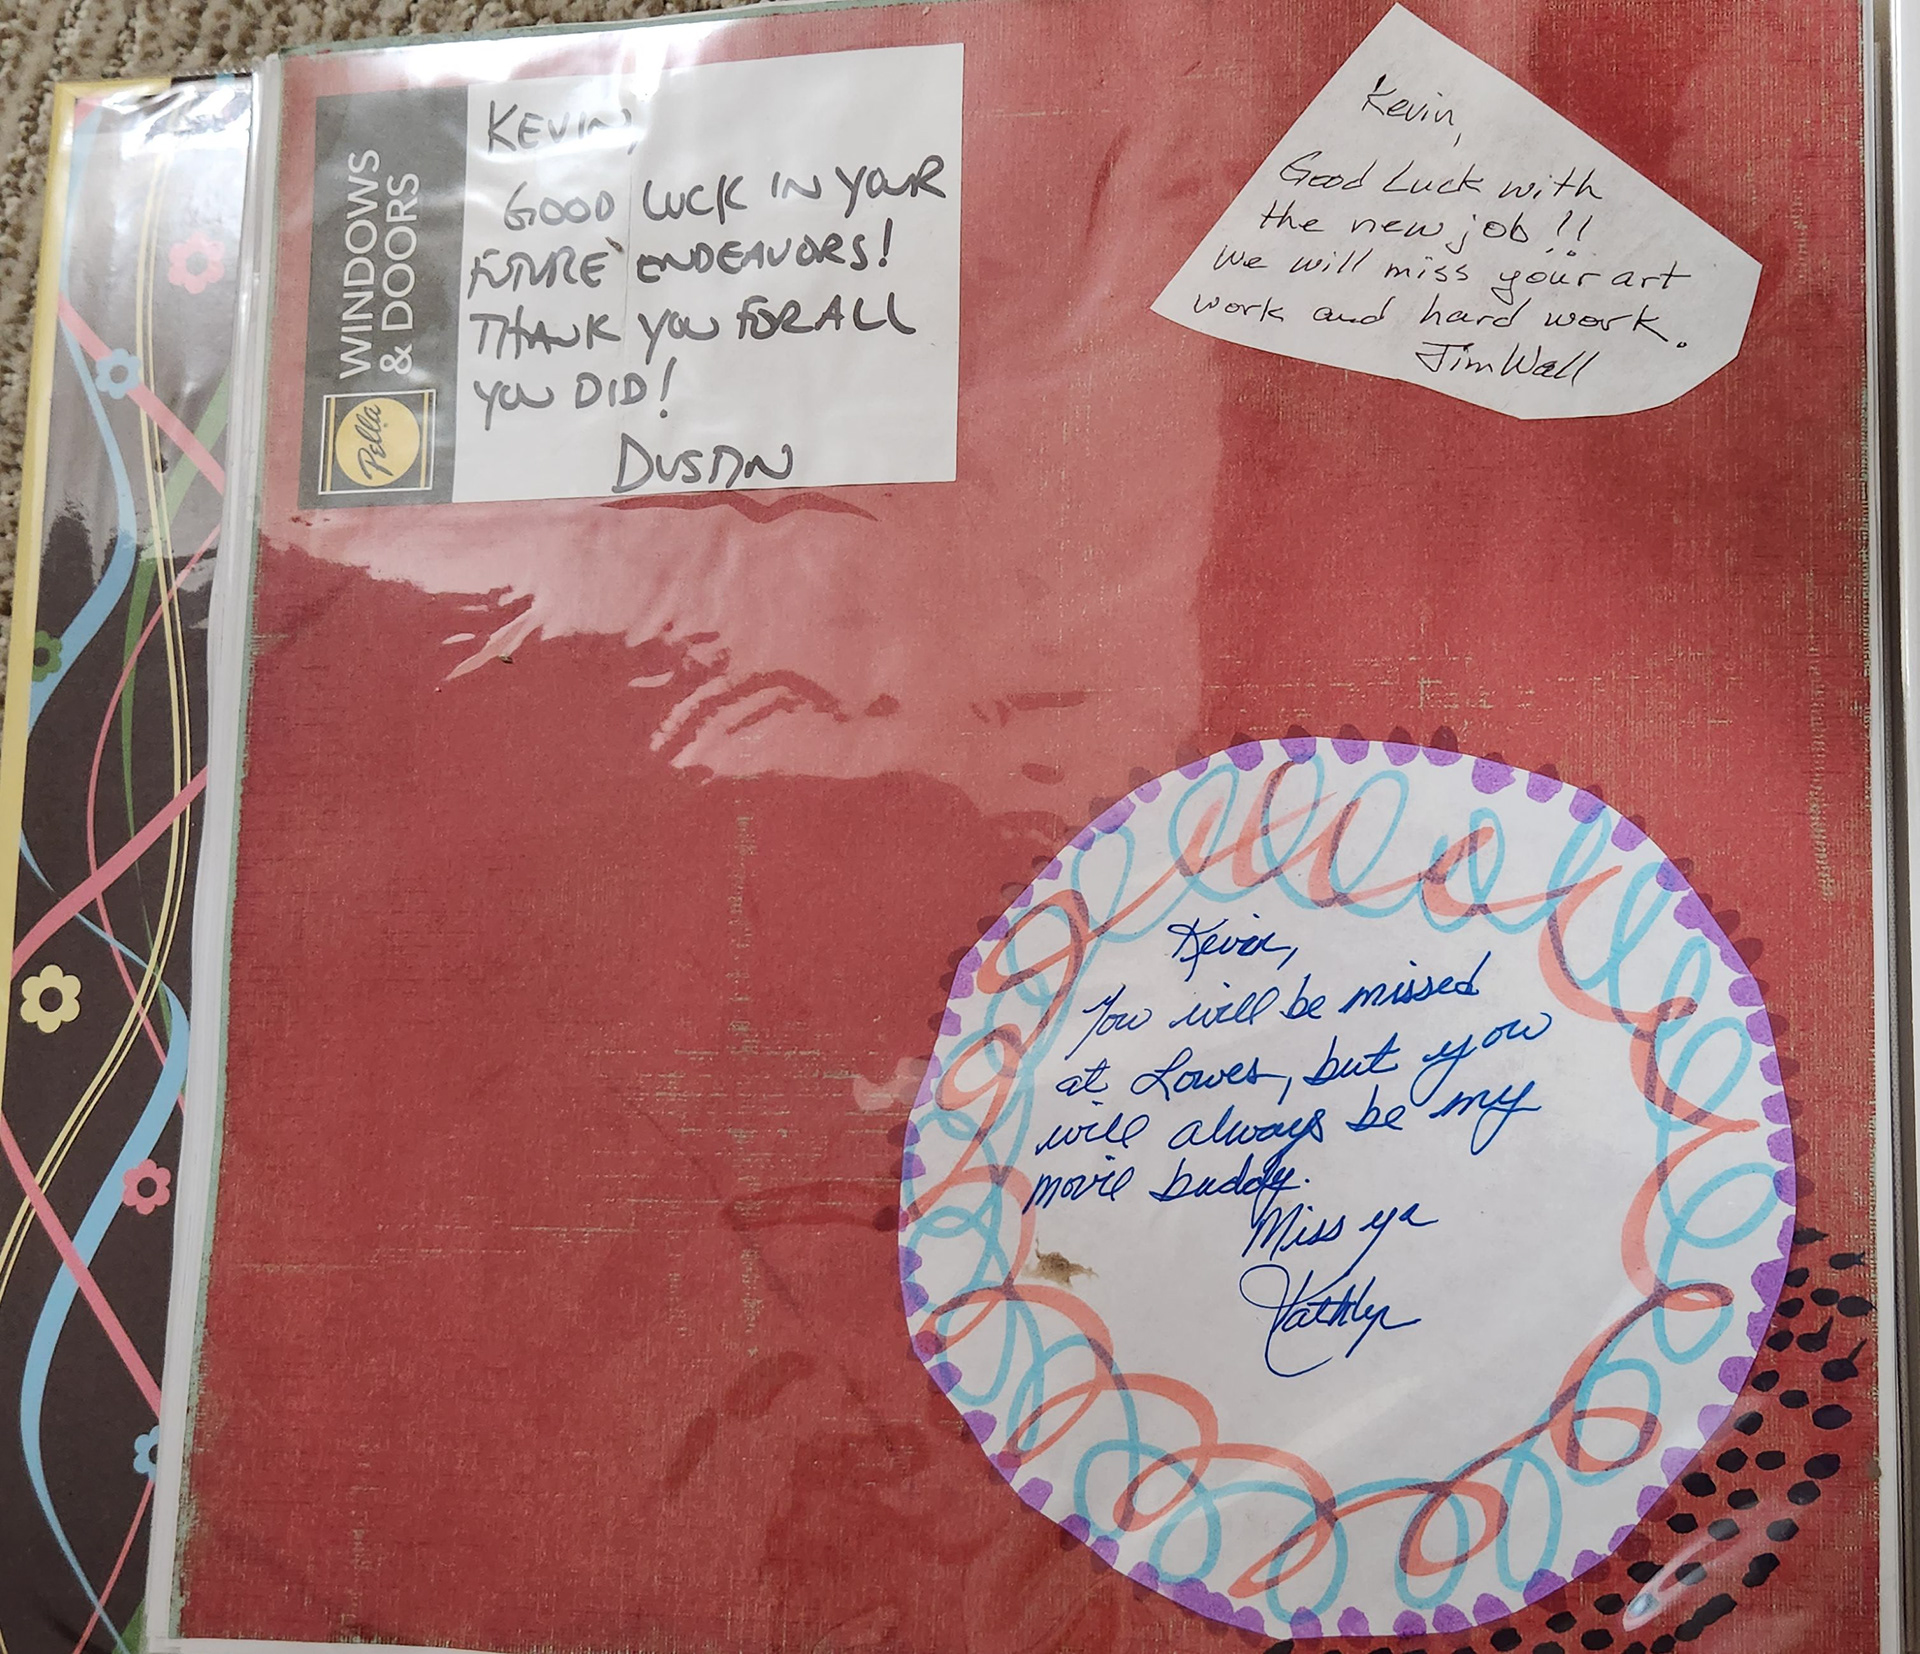 WINDOWS
& DOORS
Pella
KEVIN,
GOOD LUCK IN YOUR
FUTURE ENDEAVORS!
THANK YOU FOR ALL
YOU DID!
DUSTIN
Kevin,
Good Luck with
the new job!!
We will miss your art
work and hard work.
Jim Wall
Kevin,
You will be missed
at Lowes, but you
will always be my
movie buddy.
Miss ya
Kathlyn